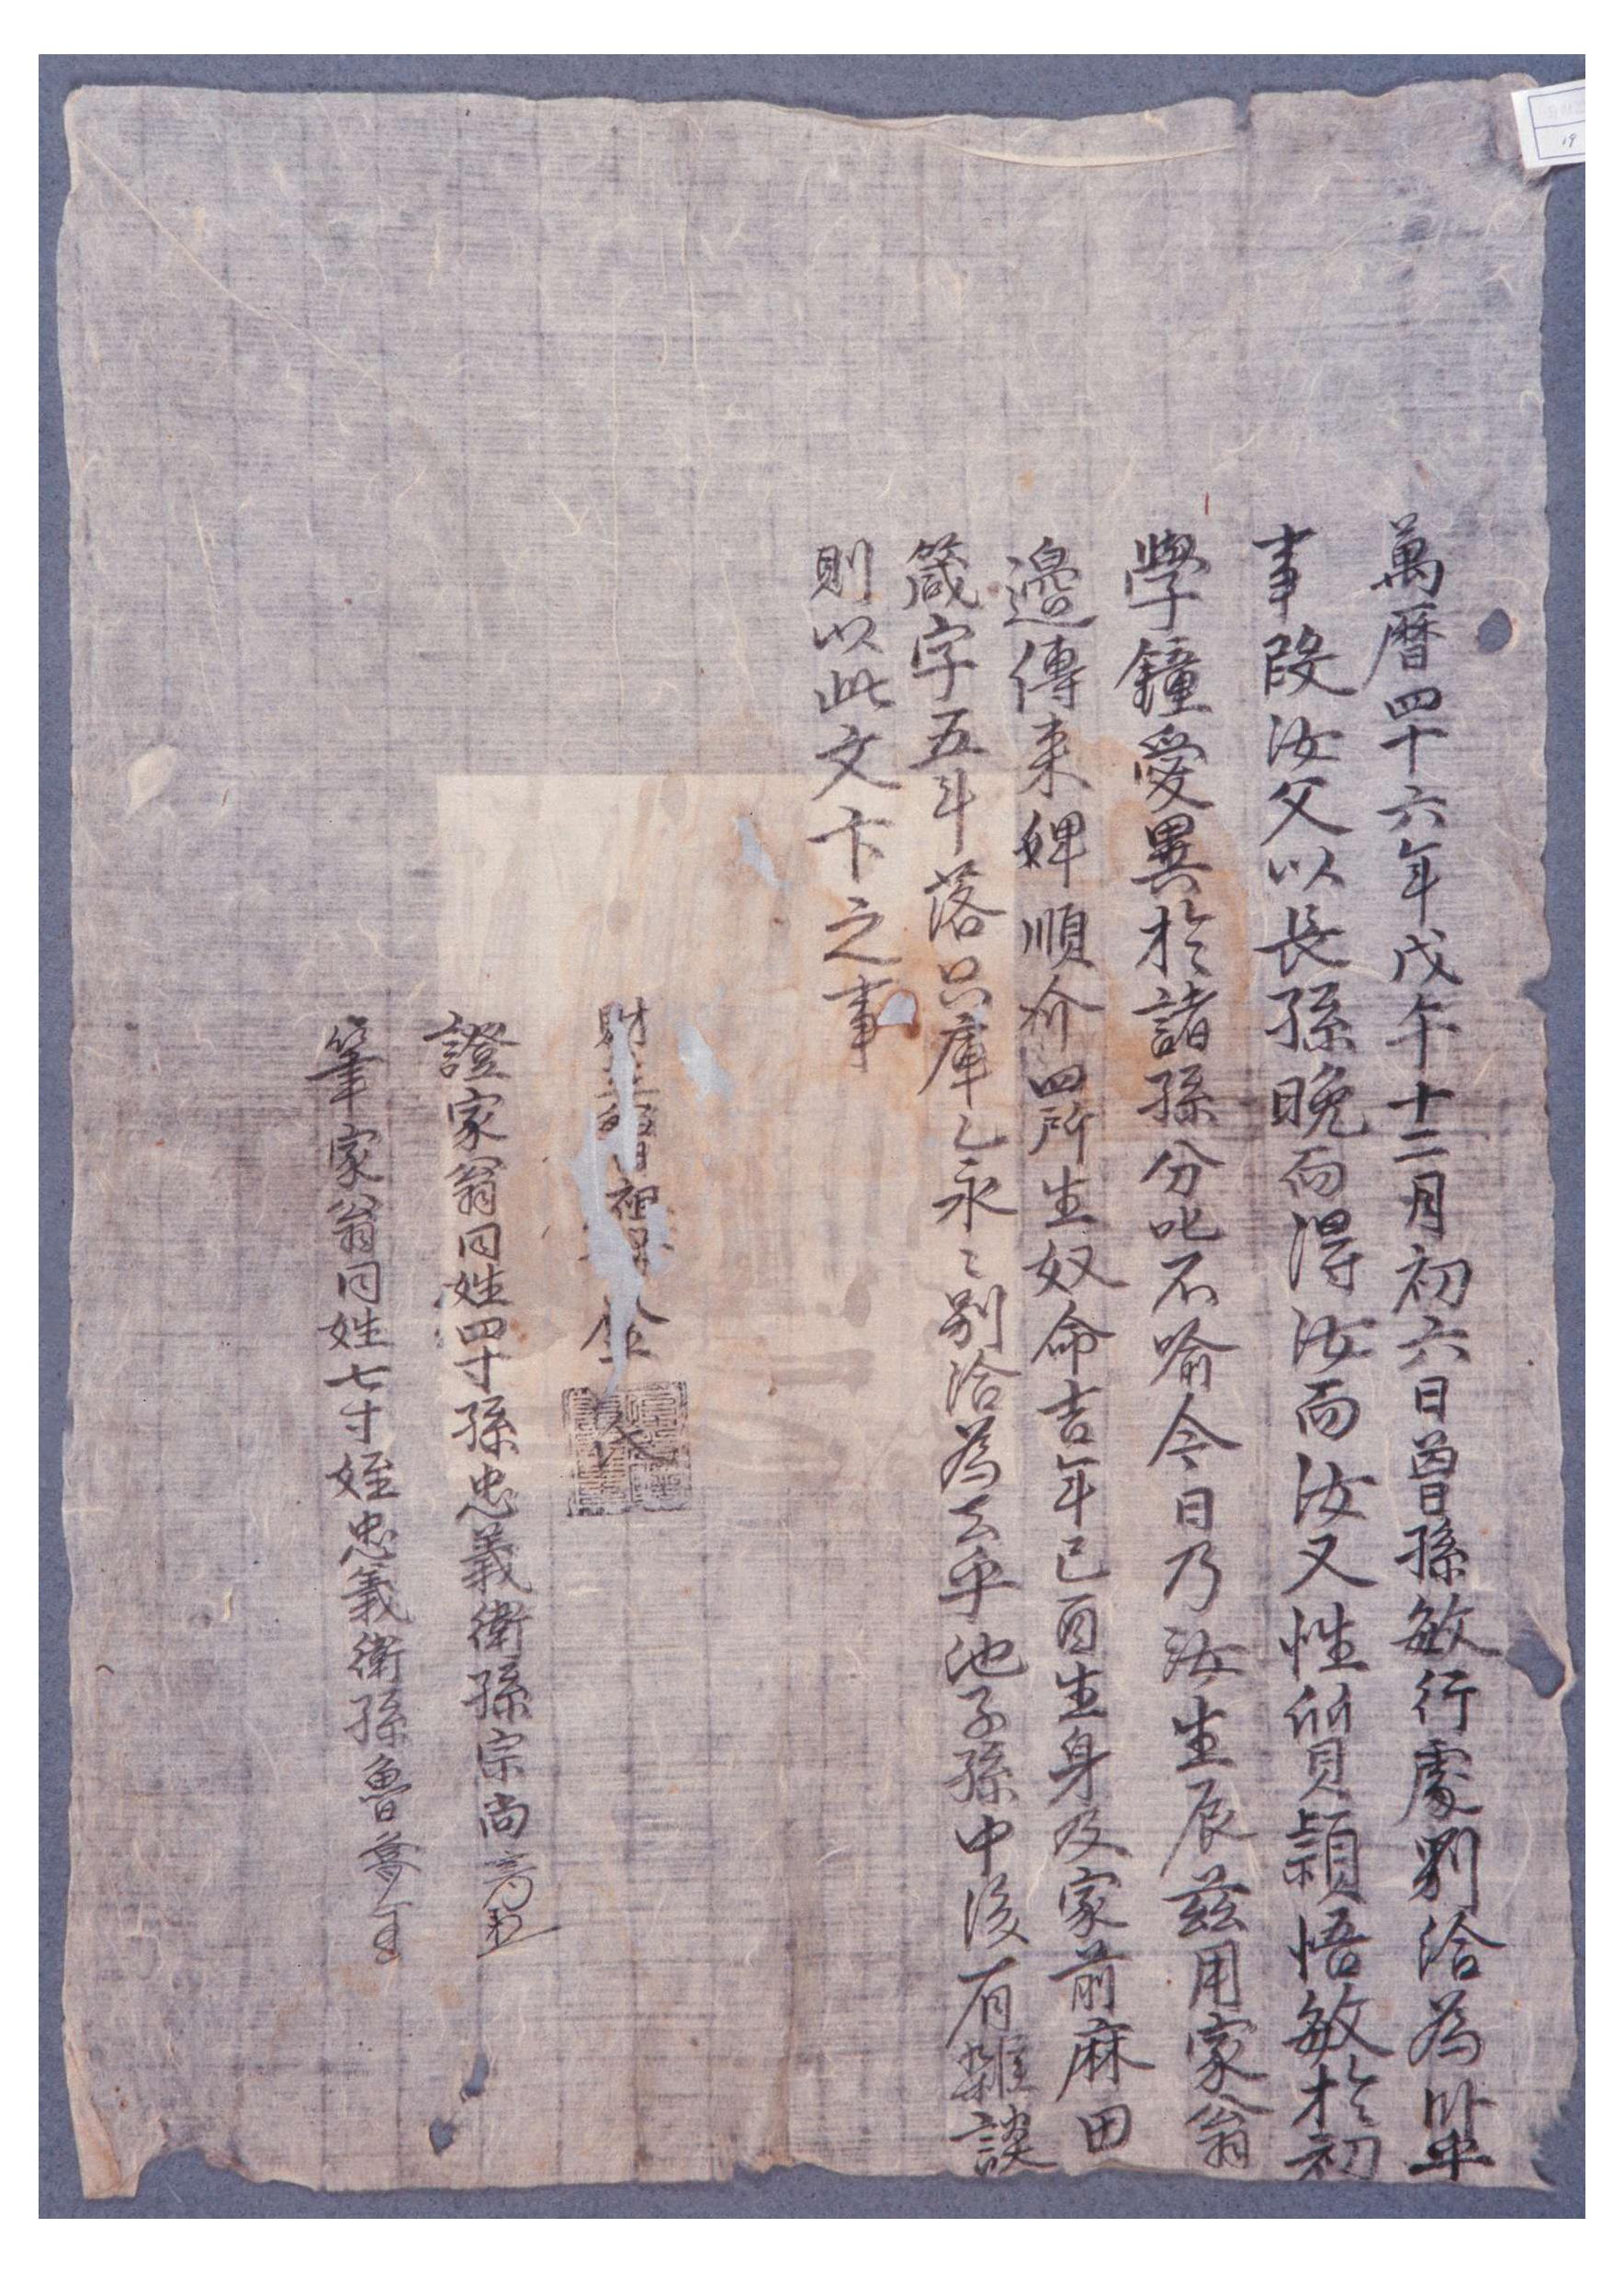 萬曆四十六年戊午十二月初六日曾孫敏行處別給為臥乎
事段汝父以長孫晩而得汝而汝又性質穎悟敏於初
學鐘愛異於諸孫分叱不喻今日乃汝生辰玆用家翁
邊傳來婢順介四所生奴命吉年己酉生身及家前麻田
箴字五斗落只庫乙永〻別給為去乎他子孫中後有雜談
則以此文卞之事
財主曾祖母金氏
證家翁同姓四寸孫忠義衛孫宗尚
筆家翁同姓七寸姪忠義衛孫魯
19